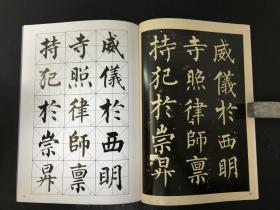 威儀於西明
寺照律師稟
持犯於崇昇
威儀於西明
寺照律師稟
持犯於崇昇